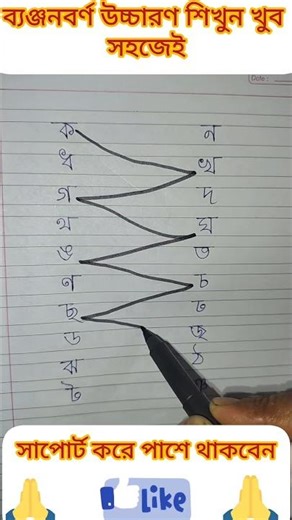 ব্যঞ্জনবর্ণ উচ্চারণ শিখুন খুব
সহজেই
ক ন
ধ খ
গ দ
থ ঘ
ঙ ত
ণ চ
ছ ঢ
ড জ
ঝ ঠ
ট
সাপোর্ট করে পাশে থাকবেন
Like